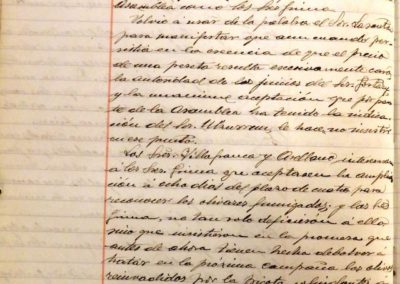 Asamblea como los Sres Gimena
Volvió a usar de la palabra el Sor.
para manifestar que aun cuando per
sistía en la creencia de que el precio
de una peseta resulta excesivamente caro
la autoridad de los juicios del Sor.
y la unanime aceptación que por par
te de la Asamblea ha tenido la indica
ción del Sr. le hace no insistir
en ese punto.
Los Sres. Villafranca y Arellano
a los Sres. Gimena que aceptasen la amplia
ción a ocho días del plazo de cuatro para
reconocer los olivares fumigados; y los Sres
Gimena, no tan solo defirieron a ello
sino que insistieron en la promesa que
antes de ahora tienen hecha de volver a
tratar en la próxima campaña los olivos
reinvadidos por la